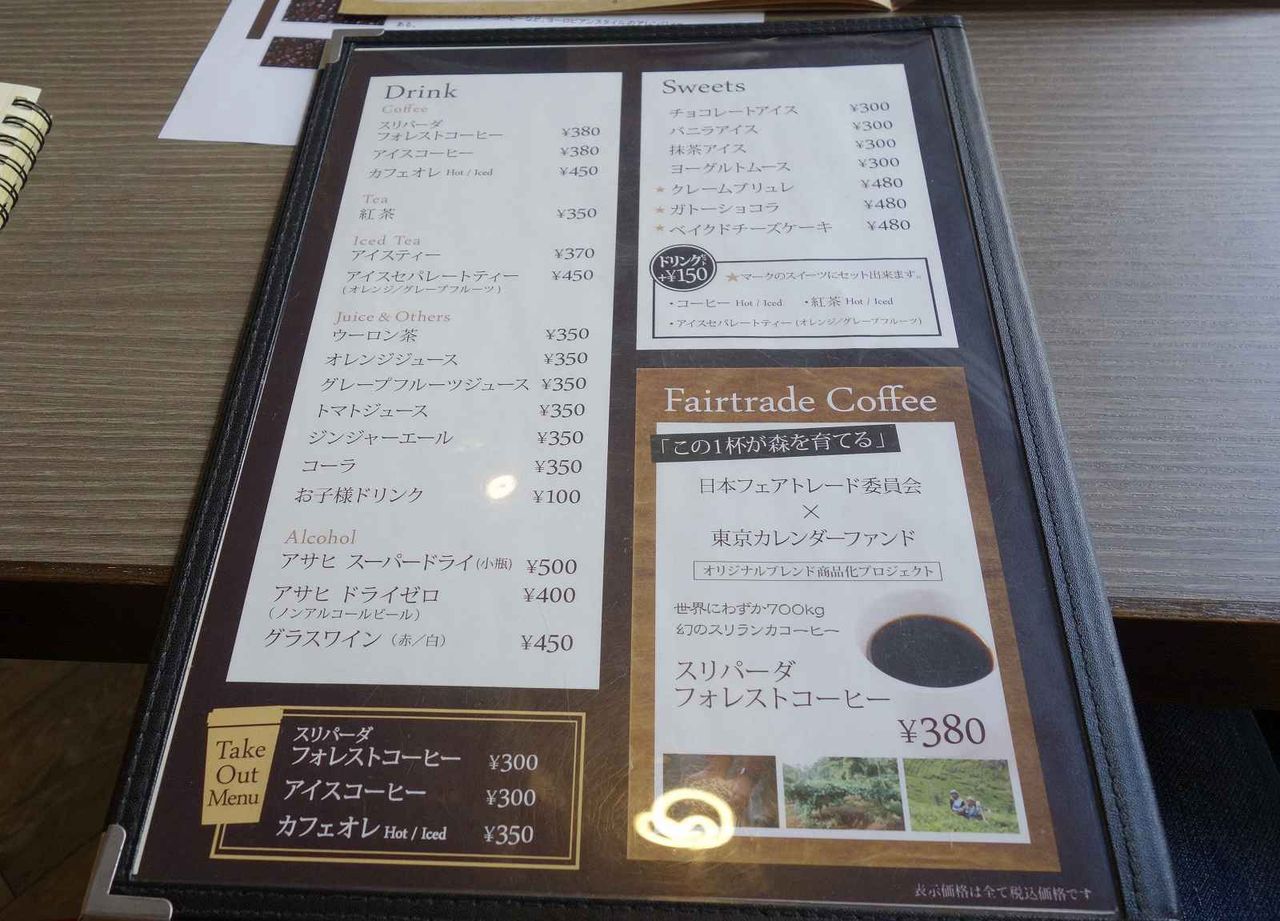 ある。
Drink
Coffee
スリパーダ
フォレストコーヒー ¥380
アイスコーヒー ¥380
カフェオレ Hot / Iced ¥450
Tea
紅茶 ¥350
Iced Tea
アイスティー ¥370
アイスセパレートティー ¥450
(オレンジ／グレープフルーツ)
Juice & Others
ウーロン茶 ¥350
オレンジジュース ¥350
グレープフルーツジュース ¥350
トマトジュース ¥350
ジンジャーエール ¥350
コーラ ¥350
お子様ドリンク ¥100
Alcohol
アサヒ スーパードライ(小瓶) ¥500
アサヒ ドライゼロ ¥400
(ノンアルコールビール)
グラスワイン (赤／白) ¥450
Take
Out
Menu
スリパーダ
フォレストコーヒー ¥300
アイスコーヒー ¥300
カフェオレ Hot / Iced ¥350
Sweets
チョコレートアイス ¥300
バニラアイス ¥300
抹茶アイス ¥300
ヨーグルトムース ¥300
★クレームブリュレ ¥480
★ガトーショコラ ¥480
★ベイクドチーズケーキ ¥480
ドリンクセット
+¥150
★マークのスイーツにセット出来ます。
・コーヒー Hot / Iced ・紅茶 Hot / Iced
・アイスセパレートティー (オレンジ／グレープフルーツ)
Fairtrade Coffee
「この1杯が森を育てる」
日本フェアトレード委員会
×
東京カレンダーファンド
オリジナルブレンド商品化プロジェクト
世界にわずか700kg
幻のスリランカコーヒー
スリパーダ
フォレストコーヒー
¥380
表示価格は全て税込価格です